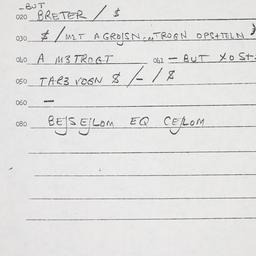 -BUT
020 BRETER / $
030 $ / M2T A GROJSN...TROGN OPSTELN
040 A M3TROGT 042 - BUT XOST.
050 TAR3 VOGN $ / - / $
060 -
080 BE/SE/LOM EQ CE/LOM